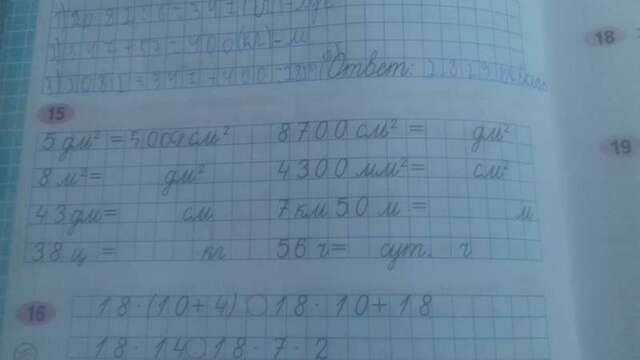 18
2) 347 + 53 = 400 (кг) - м
Ответ:
15
5 дм² = 500 см² 8700 см² = дм²
8 м² = дм² 4300 мм² = см²
43 дм = см 7 км 50 м = м
38 ц = кг 56 ч = сут. ч
19
16
18 · (10 + 4) ○ 18 · 10 + 18
18 · 14 ○ 18 · 7 · 2